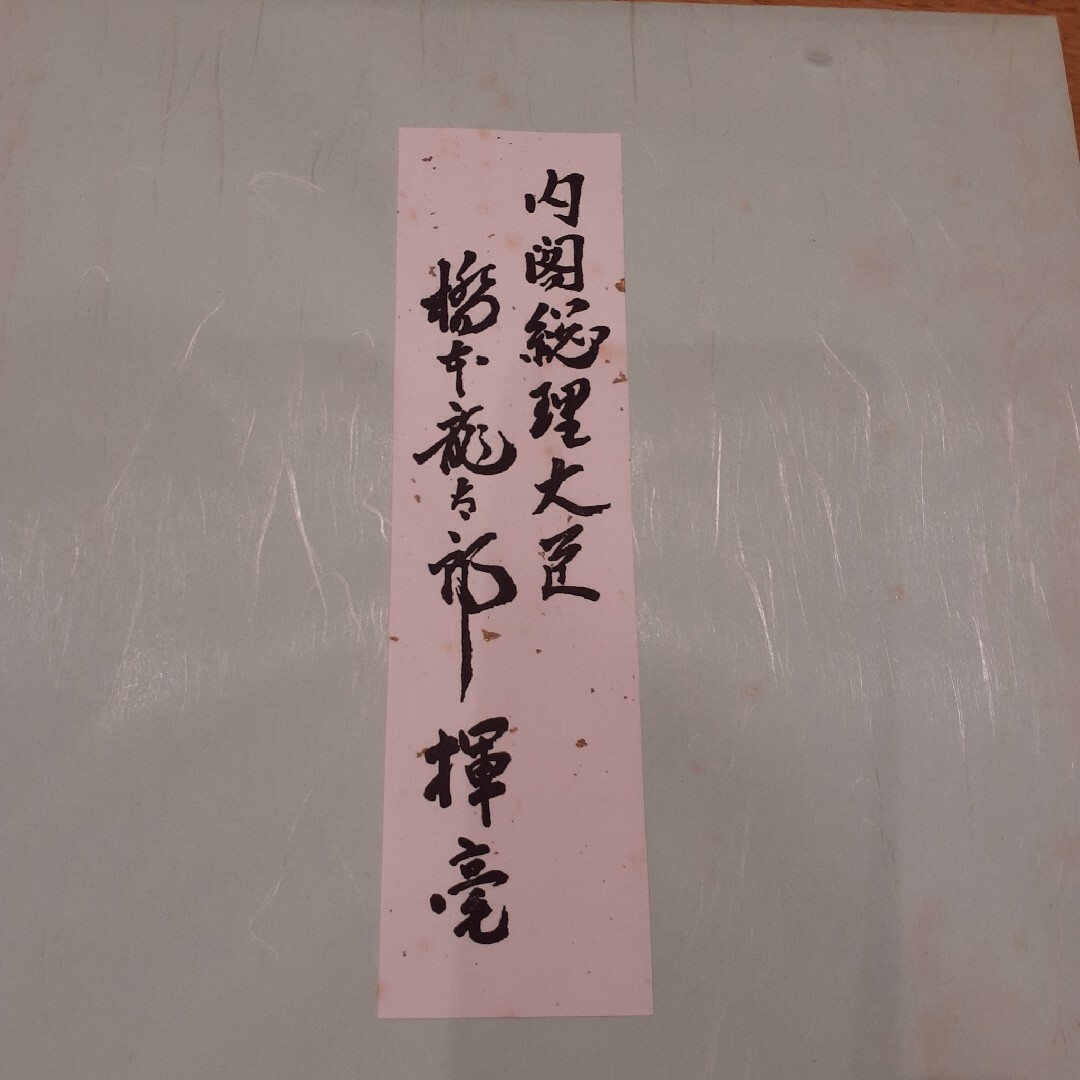 内閣総理大臣
橋本龍太郎 揮毫